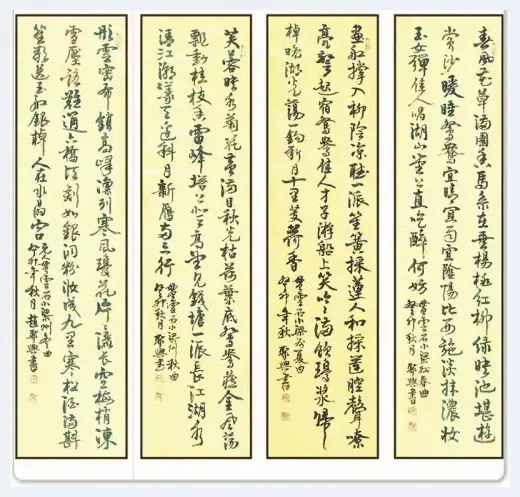 春風花草滿園香馬系在垂楊桃红柳绿映池塘堪遊
賞沙暖睡鴛鴦宜晴宜雨宜陰陽比西施淡抹濃妝
玉女彈佳人唱湖山堂上直吃醉何妨
貫雲石小梁州春曲
癸卯秋月 聚興書
畫船撑入柳陰凉聽一派笙簧採蓮人和採蓮腔聲嘹
亮驚起宿鴛鴦佳人才子游船上笑吟吟滿飲瓊漿歸
棹晚湖光蕩一鈎新月十里芰荷香
貫雲石小梁州夏曲
癸卯年秋 聚興書
芙蓉映水菊花黄滿目秋光枯荷葉底鴛鴦藏金風蕩
飄動桂枝香雷峰塔畔登高望見錢塘一派長江湖水
清江潮漾天邊斜月新雁兩三行
貫雲石小梁州秋曲
癸卯秋月 聚興書
彤雲密布鎖高峰凛冽寒風瓊花片片洒長空梅梢凍
雪壓路難通六橋頃刻如銀洞粉妝成九里寒松酒滿斟
笙歌送玉船銀棹人在水晶宫
元人貫雲石小梁州冬曲
癸卯年秋月 趙聚興書